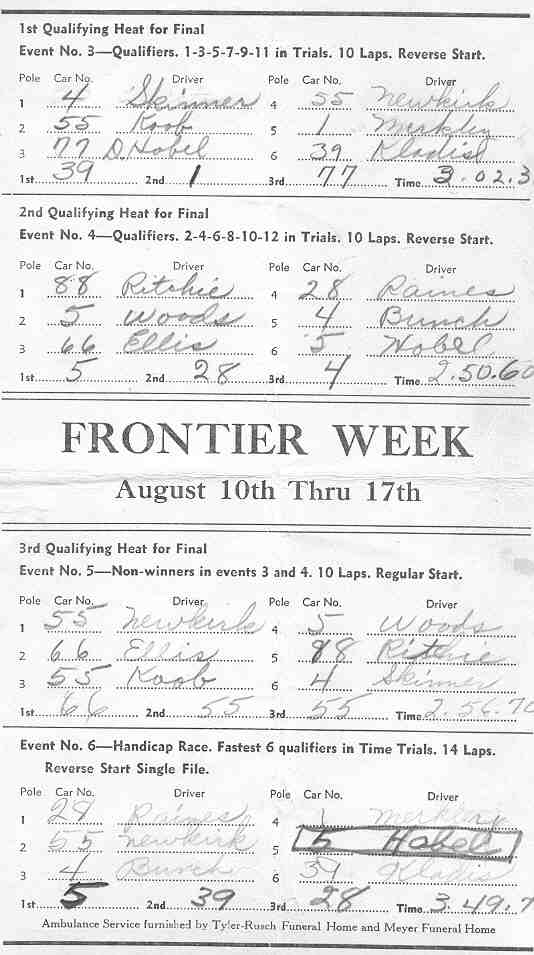 1st Qualifying Heat for Final
Event No. 3—Qualifiers. 1-3-5-7-9-11 in Trials. 10 Laps. Reverse Start.
Pole Car No. Driver Pole Car No. Driver
1 4 Skinner 4 55 Newkirk
2 55 Koob 5 1
3 77 D. Hobel 6 39 Kladis
1st 39 2nd 1 3rd 77 Time 3.02.3
2nd Qualifying Heat for Final
Event No. 4—Qualifiers. 2-4-6-8-10-12 in Trials. 10 Laps. Reverse Start.
Pole Car No. Driver Pole Car No. Driver
1 88 Ritchie 4 28 Raines
2 5 Woods 5 4 Bunch
3 66 Ellis 6 5 Hobel
1st 5 2nd 28 3rd 4 Time 2.50.60
FRONTIER WEEK
August 10th Thru 17th
3rd Qualifying Heat for Final
Event No. 5—Non-winners in events 3 and 4. 10 Laps. Regular Start.
Pole Car No. Driver Pole Car No. Driver
1 55 Newkirk 4 5 Woods
2 66 Ellis 5 88 Ritchie
3 55 Koob 6 4 Skinner
1st 66 2nd 55 3rd 55 Time 2.56.70
Event No. 6—Handicap Race. Fastest 6 qualifiers in Time Trials. 14 Laps.
Reverse Start Single File.
Pole Car No. Driver Pole Car No. Driver
1 Raines 4 1
2 55 Newkirk 5 5 Hobel
3 4 Bunch 6 39 Kladis
1st 5 2nd 39 3rd 28 Time 3.49.7
Ambulance Service furnished by Tyler-Rusch Funeral Home and Meyer Funeral Home